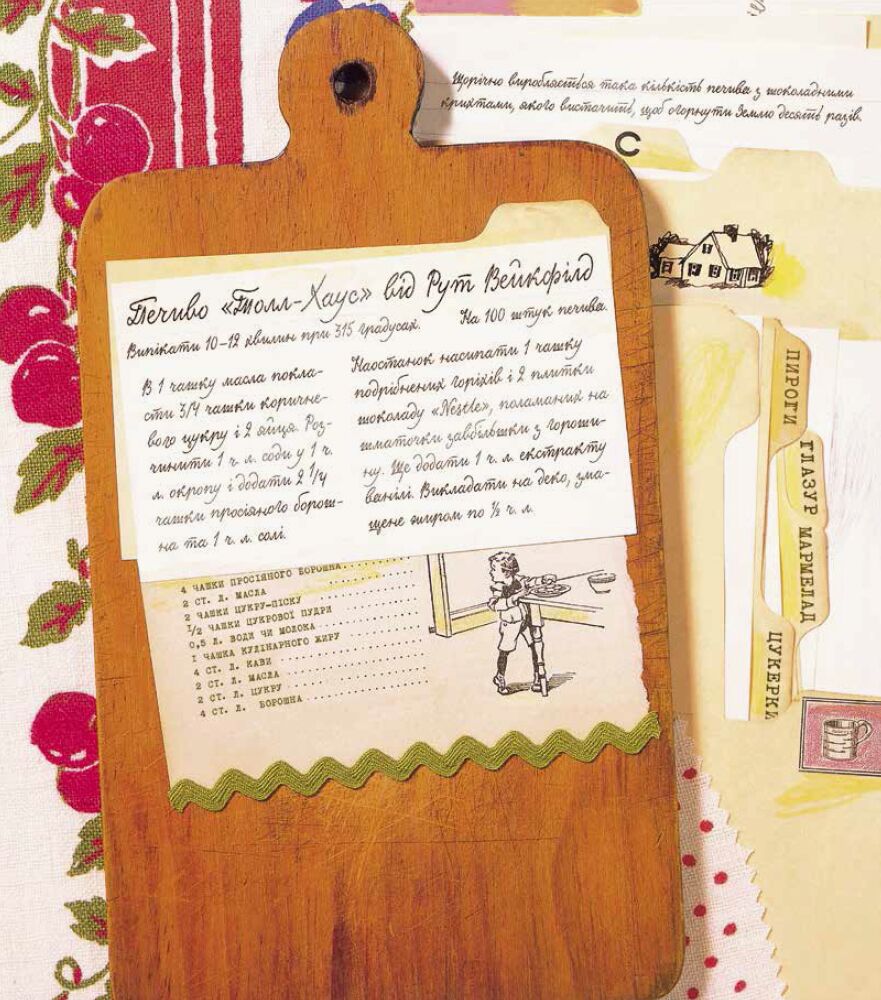 Щорічно виробляється така кількість печива з шоколадними
крихтами, якого вистачить, щоб огорнути Землю десять разів.
C
Печиво «Толл-Хаус» від Рут Вейкфілд
Випікати 10–12 хвилин при 315 градусах. На 100 штук печива.
В 1 чашку масла покла-
сти 3/4 чашки коричне-
вого цукру і 2 яйця. Роз-
чинити 1 ч. л. соди у 1 ч.
л. окропу і додати 2 1/4
чашки просіяного борош-
на та 1 ч. л. солі.
Наостанок насипати 1 чашку
подрібнених горіхів і 2 плитки
шоколаду «Nestle», поламаних на
шматочки завбільшки з гороши-
ну. Ще додати 1 ч. л. екстракту
ванілі. Викладати на деко, зма-
щене жиром по ½ ч. л.
4 ЧАШКИ ПРОСІЯНОГО БОРОШНА
2 СТ. Л. МАСЛА
2 ЧАШКИ ЦУКРУ-ПІСКУ
1/2 ЧАШКИ ЦУКРОВОЇ ПУДРИ
0,5 Л. ВОДИ ЧИ МОЛОКА
I ЧАШКА КУЛІНАРНОГО ЖИРУ
4 СТ. Л. КАВИ
2 СТ. Л. МАСЛА
2 СТ. Л. ЦУКРУ
4 СТ. Л. БОРОШНА
ПИРОГИ
ГЛАЗУР
МАРМЕЛАД
ЦУКЕРКИ